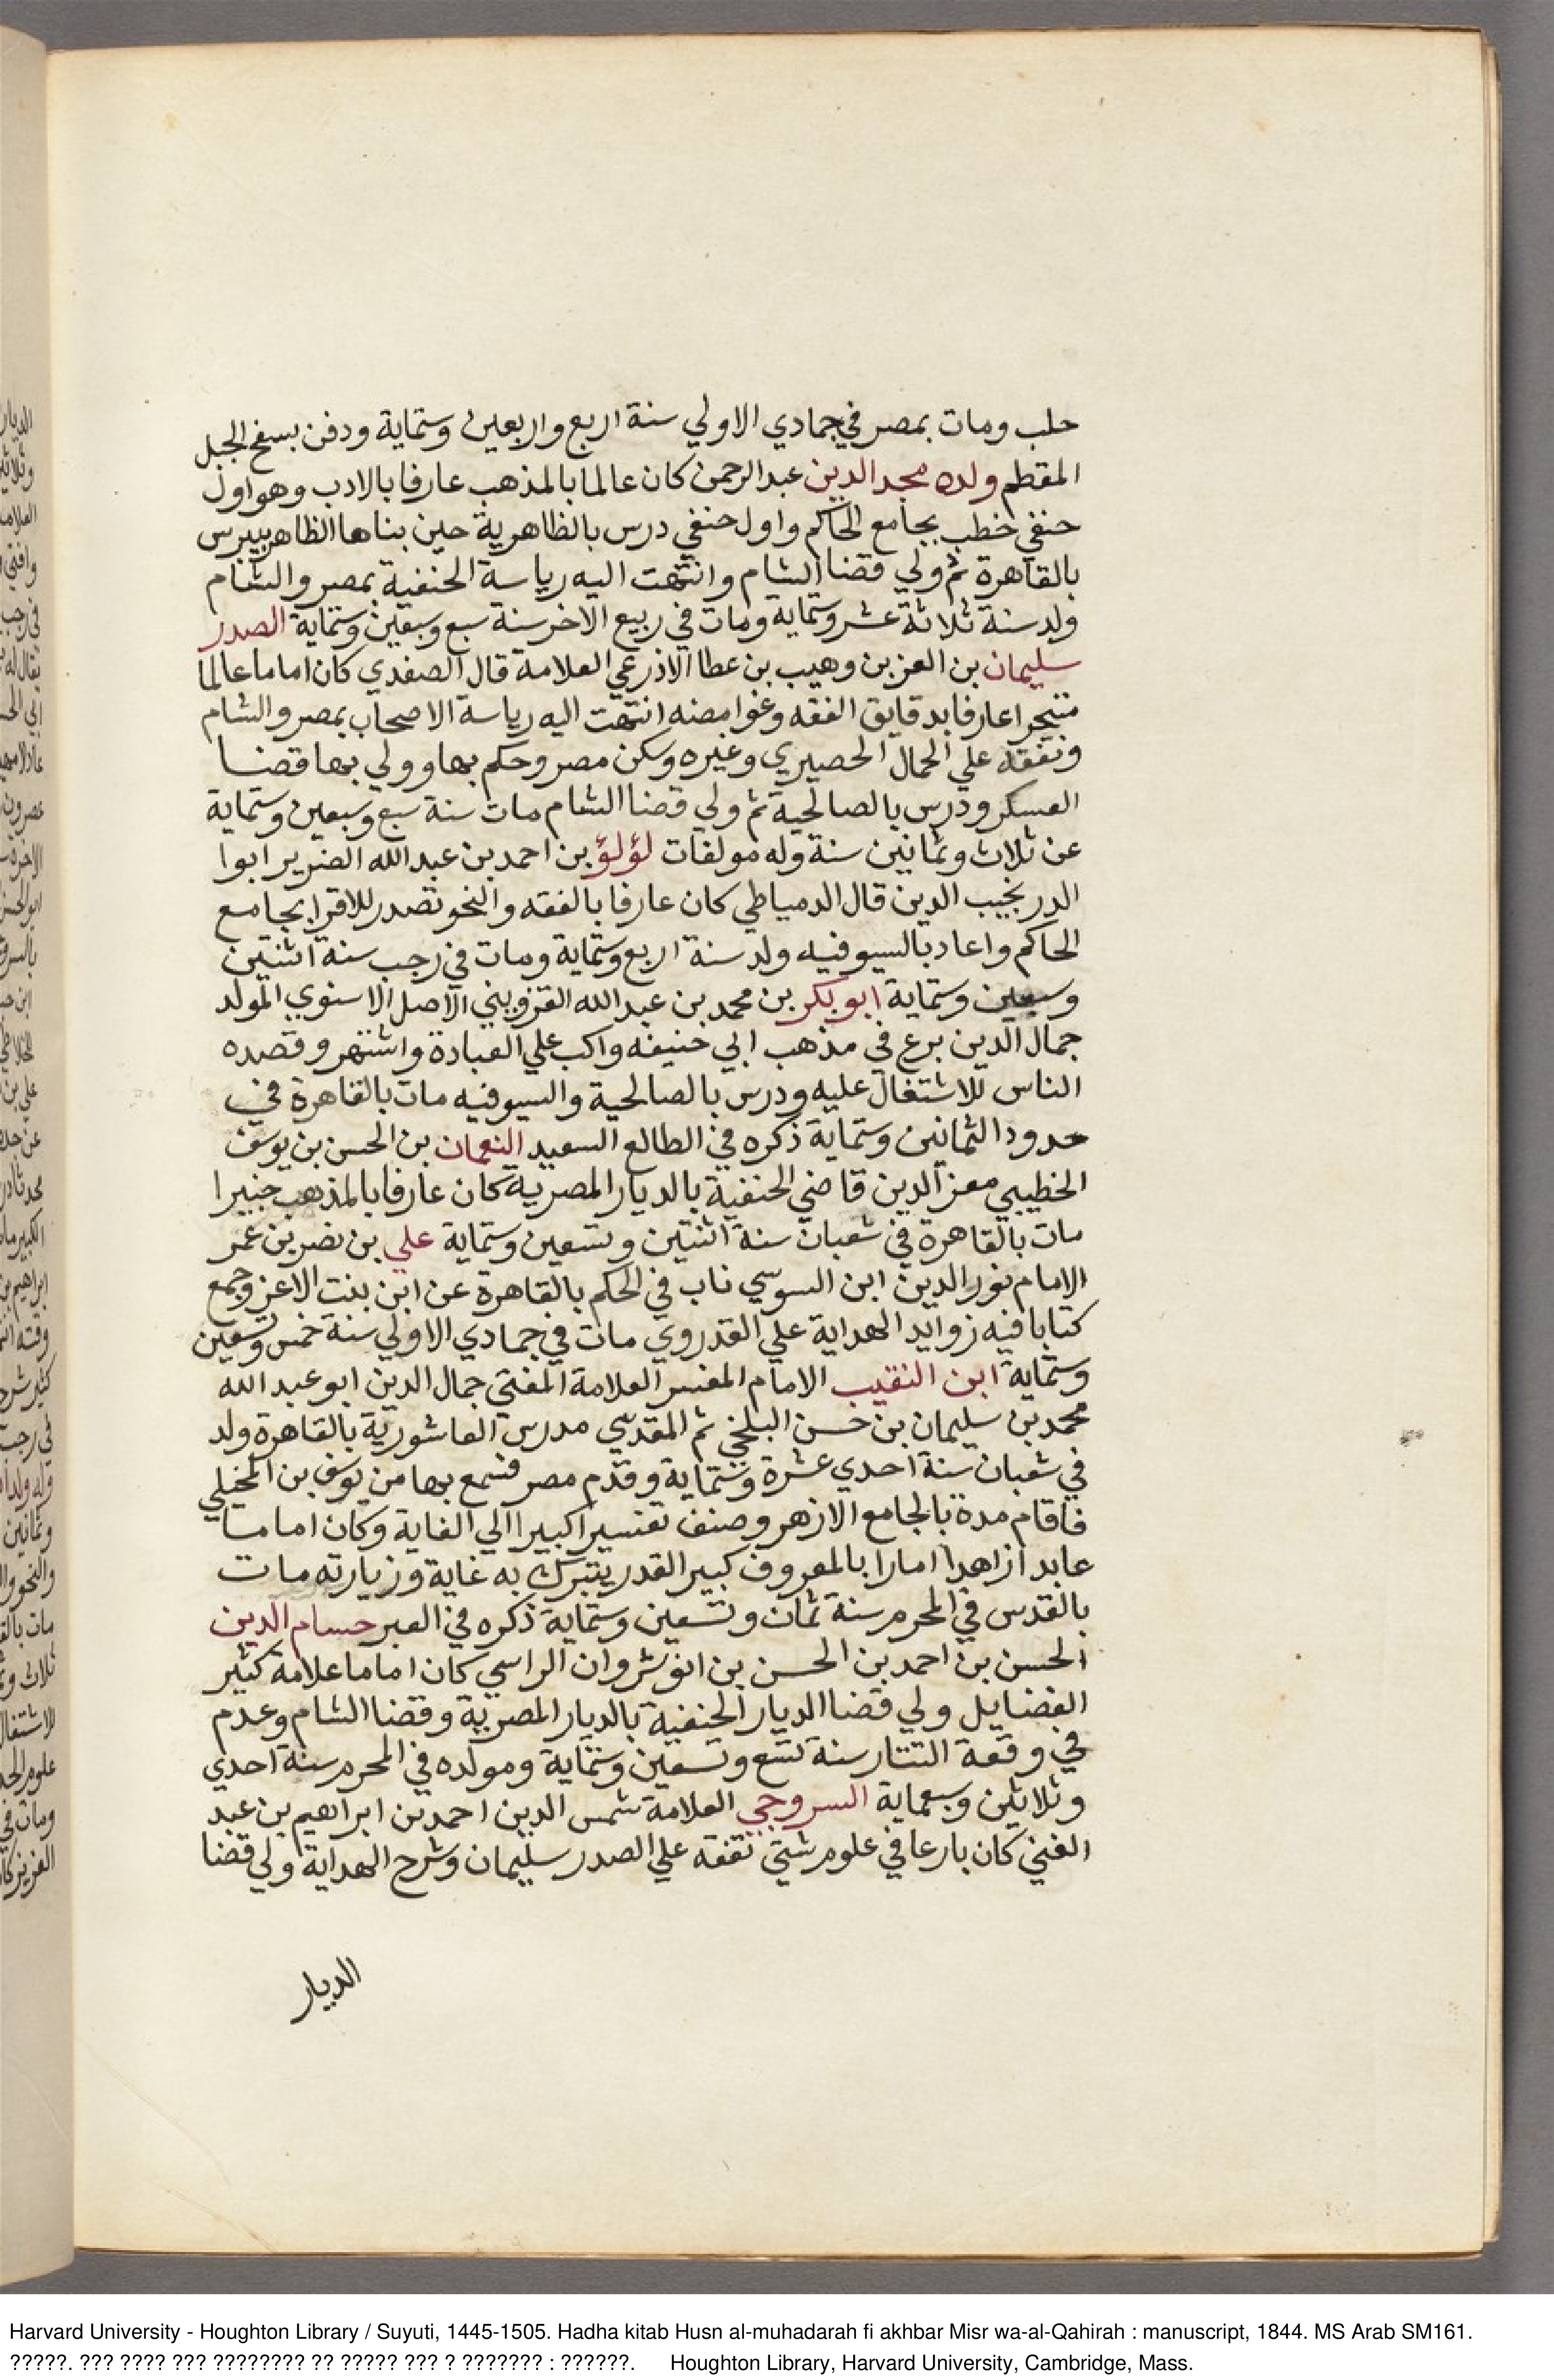 حلب ومات بمصر في جمادي الاولي سنة اربع واربعين وستماية ودفن بسفح الجبل
المقطم ولده مجد الدين عبد الرحمن كان عالما بالمذهب عارفا بالادب وهو اول
حنفي خطب بجامع الحاكم واول حنفي درس بالظاهرية حين بناها الظاهر بيبرس
بالقاهرة ثم ولي قضا الشام وانتهت اليه رياسة الحنفية بمصر والشام
ولد سنة ثلاثة عشر وستماية ومات في ربيع الاخر سنة سبع وسبعين وستماية الصدر
سليمان بن العز بن وهيب بن عطا الاذرعي العلامة قال الصفدي كان اماما عالما
متبحرا عارفا بدقايق الفقه وغوامضه انتهت اليه رياسة الاصحاب بمصر والشام
وتفقه علي الجمال الحصيري وغيره وسكن مصر وحكم بها وولي بها قضا
العسكر ودرس بالصالحية ثم ولي قضا الشام مات سنة سبع وسبعين وستماية
عن ثلاث وثمانين سنة وله مولفات لؤلؤ بن احمد بن عبد الله الضرير ابوا
الدر نجيب الدين قال الدمياطي كان عارفا بالفقه والنحو تصدر للاقرا بجامع
الحاكم واعاد بالسيوفيه ولد سنة اربع وستماية ومات في رجب سنة اثنتين
وسبعين وستماية ابو بكر بن محمد بن عبد الله القزويني الاصل الاسنوي المولد
جمال الدين برع في مذهب ابي حنيفه واكب علي العبادة واشتهر وقصده
الناس للاشتغال عليه ودرس بالصالحية والسيوفيه مات بالقاهرة في
حدود الثمانين وستماية ذكره في الطالع السعيد النعمان بن الحسن بن يوسف
الخطيبي معز الدين قاضي الحنفية بالديار المصرية كان عارفا بالمذهب خبيرا
مات بالقاهرة في شعبان سنة اثنتين وتسعين وستماية علي بن نصر بن عمر
الامام نور الدين ابن السوسي ناب في الحكم بالقاهرة عن ابن بنت الاعز وجمع
كتابا فيه زوايد الهداية علي القدروي مات في جمادي الاولي سنة خمس وتسعين
وستماية ابن النقيب الامام المفسر العلامة المفتي جمال الدين ابو عبد الله
محمد بن سليمان بن حسن البلخي ثم المقدسي مدرس العاشورية بالقاهرة ولد
في شعبان سنة احدي عشرة وستماية وقدم مصر فسمع بها من يوسف بن المخيلي
فاقام مدة بالجامع الازهر وصنف تفسيرا كبيرا الي الغاية وكان اماما
عابدا زاهدا امارا بالمعروف كبير القدر يتبرك به غاية وزيارته مات
بالقدس في المحرم سنة ثمان وتسعين وستماية ذكره في العبر حسام الدين
الحسن بن احمد بن الحسن بن انوشروان الراسي كان اماما علامة كثير
الفضايل ولي قضا الديار الحنفية بالديار المصرية وقضا الشام وعدم
في وقعة التتار سنة تسع وتسعين وستماية ومولده في المحرم سنة احدي
وثلاثين وسبعماية السروجي العلامة شمس الدين احمد بن ابراهيم بن عبد
الغني كان بارعا في علوم شتي تفقه علي الصدر سليمان وشرح الهداية ولي قضا
الديار
Harvard University - Houghton Library / Suyuti, 1445-1505. Hadha kitab Husn al-muhadarah fi akhbar Misr wa-al-Qahirah : manuscript, 1844. MS Arab SM161.
?????. ??? ???? ??? ???????? ?? ????? ??? ? ??????? : ??????. Houghton Library, Harvard University, Cambridge, Mass.